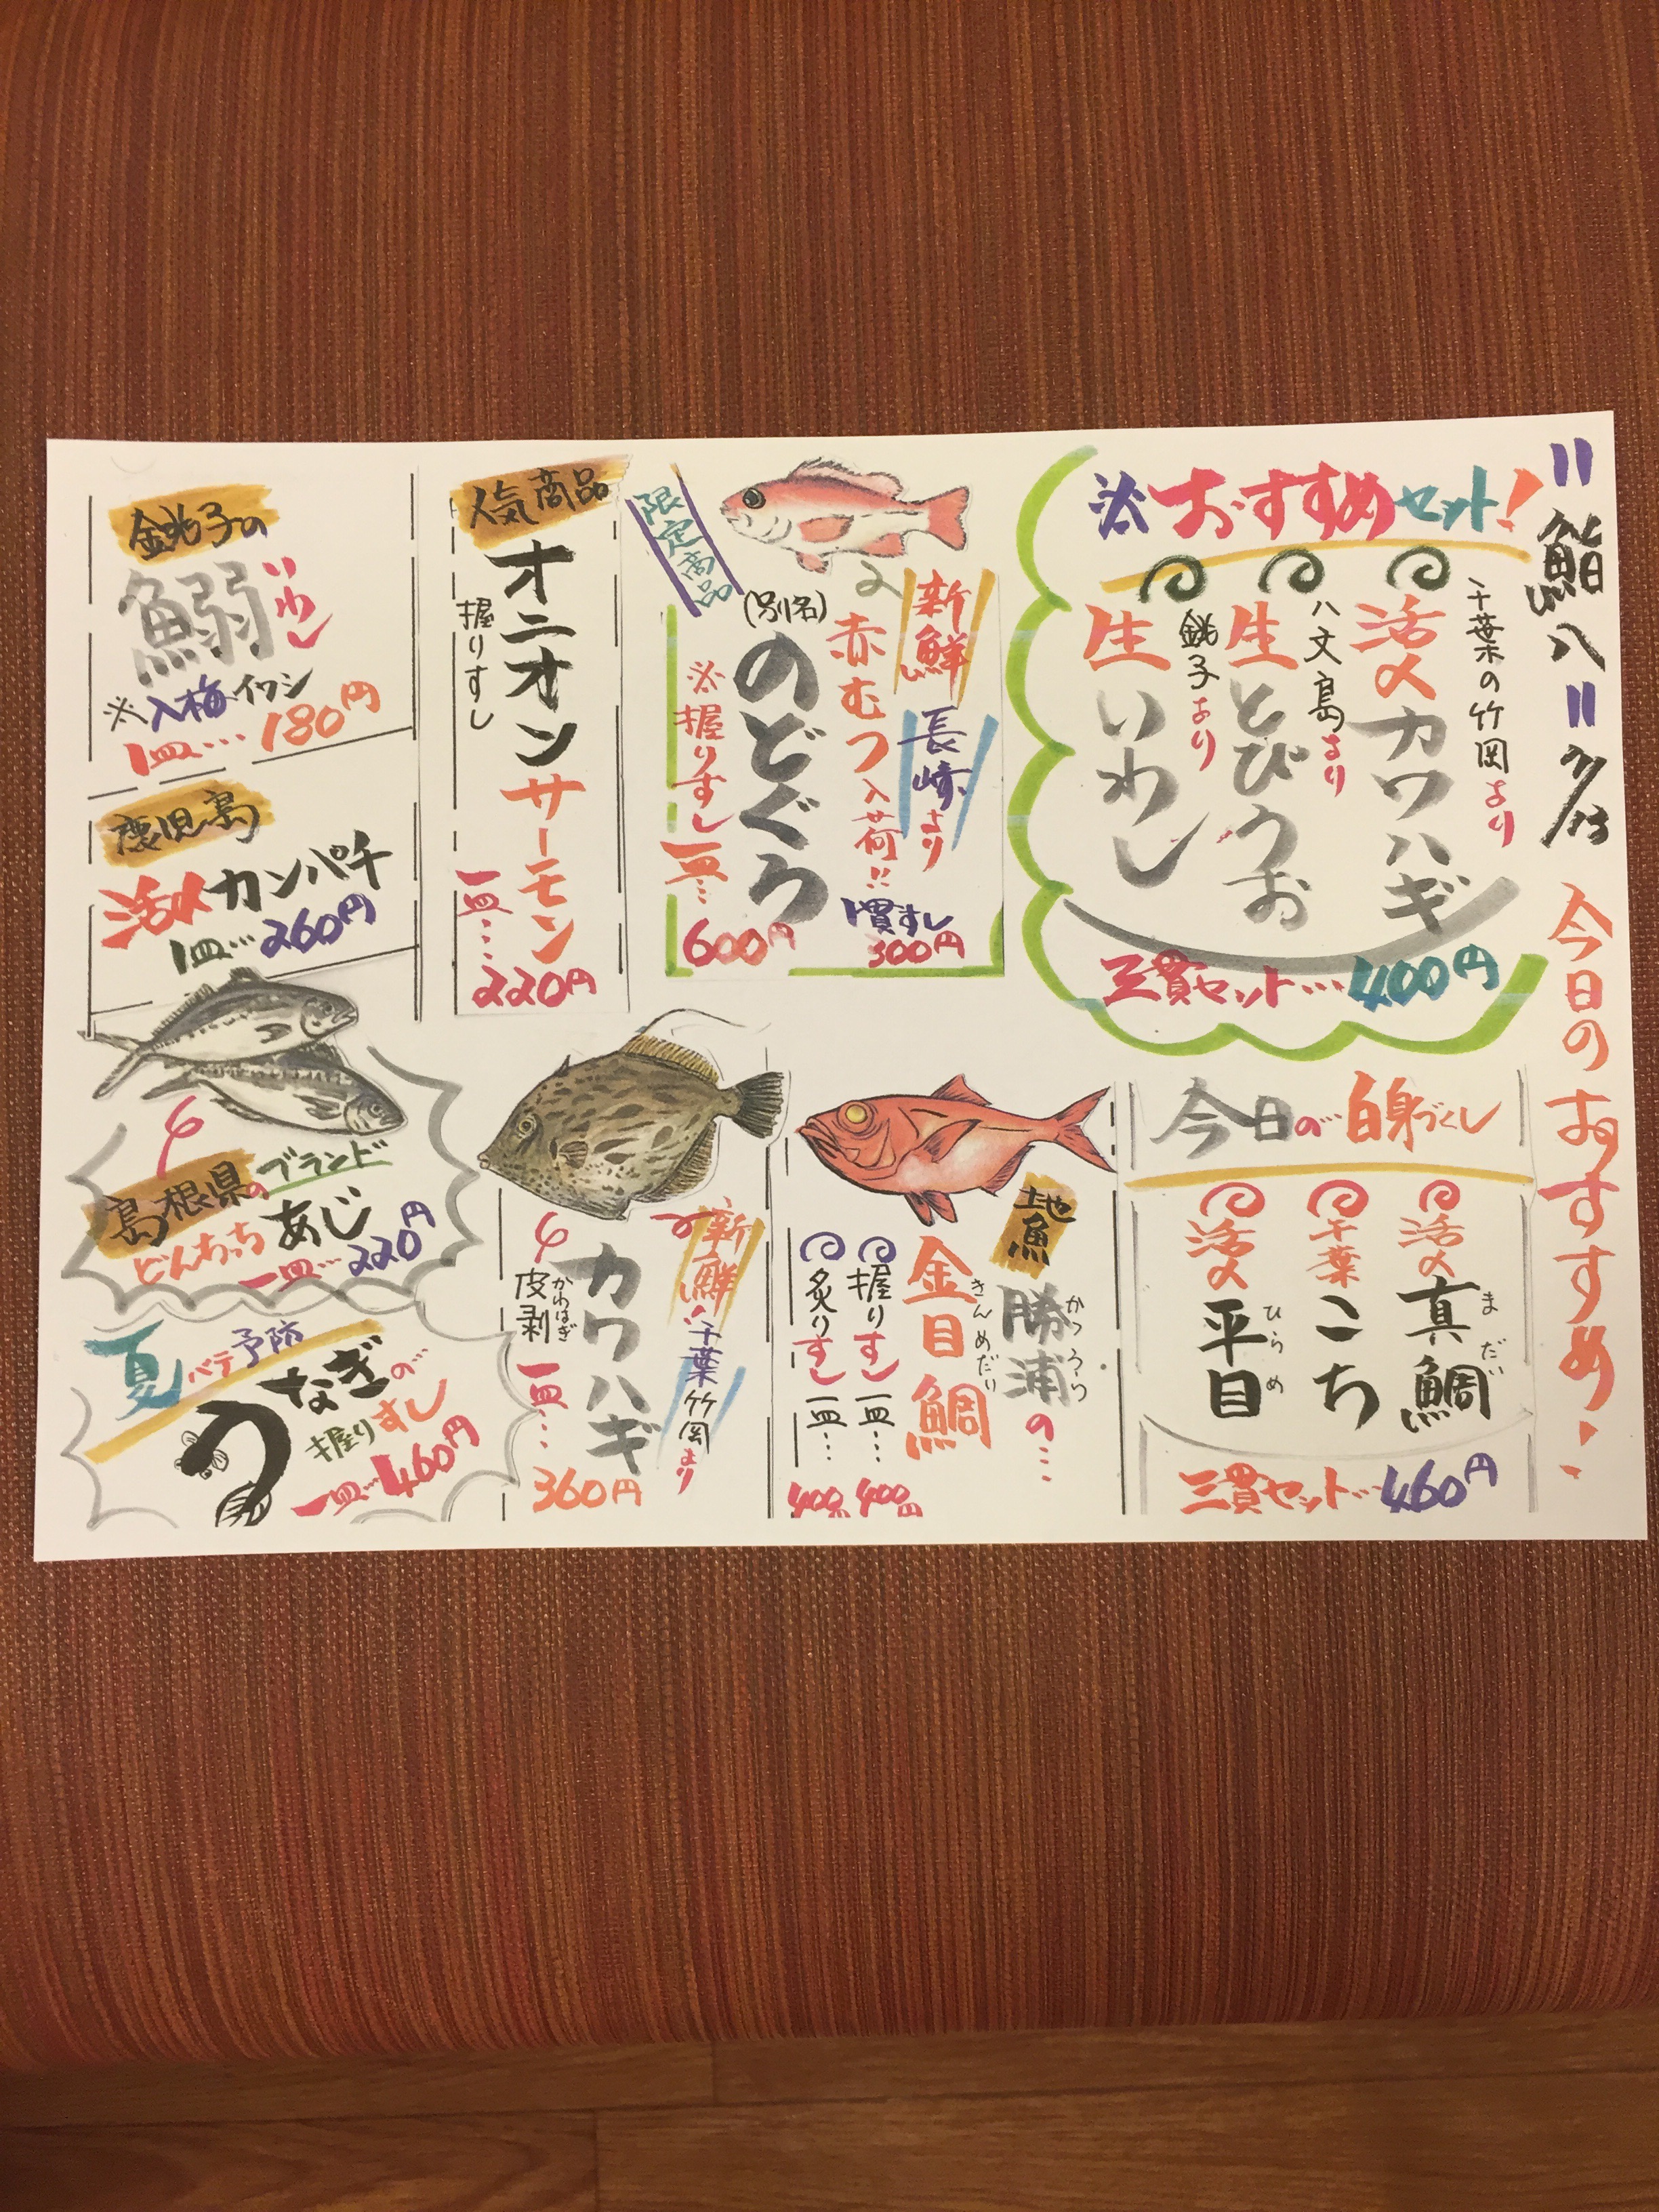 "鮨八" 7/13
今日のおすすめ!
※おすすめセット!
千葉の竹岡より
活〆カワハギ
八丈島より
生とびうお
銚子より
生いわし
三貫セット…400円
限定商品
新鮮
長崎より
赤むつ入荷!!
(別名)
のどぐろ
1貫すし
300円
※握りすし
一皿…
600円
人気商品
オニオンサーモン
握りすし
一皿…
220円
銚子の
鰯
いわし
※入梅イワシ
1皿…180円
鹿児島
活〆カンパチ
1皿…260円
今日の白身づくし
活〆
真鯛
まだい
千葉
こち
活〆
平目
ひらめ
三貫セット…460円
地魚
勝浦の…
かつうら
金目鯛
きんめだい
握りすし一皿…
400円
炙りすし一皿…
400円
新鮮!
千葉竹岡より
カワハギ
皮剥
かわはぎ
一皿…
360円
島根県のブランド
どんちっちあじ
一皿…220円
夏バテ予防
うなぎの
握りすし
一皿…460円